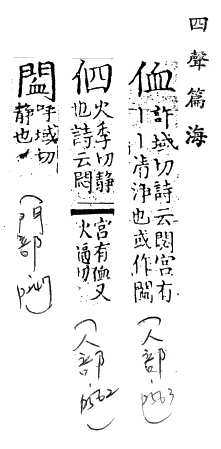 四聲篇海
侐
許域切詩云閟宮有
丨丨清淨也或作
(人部 p563)
伵
火季切靜
也詩云閟
宮有侐又
火逼切
(人部 p562)
呼域切
靜也
(門部